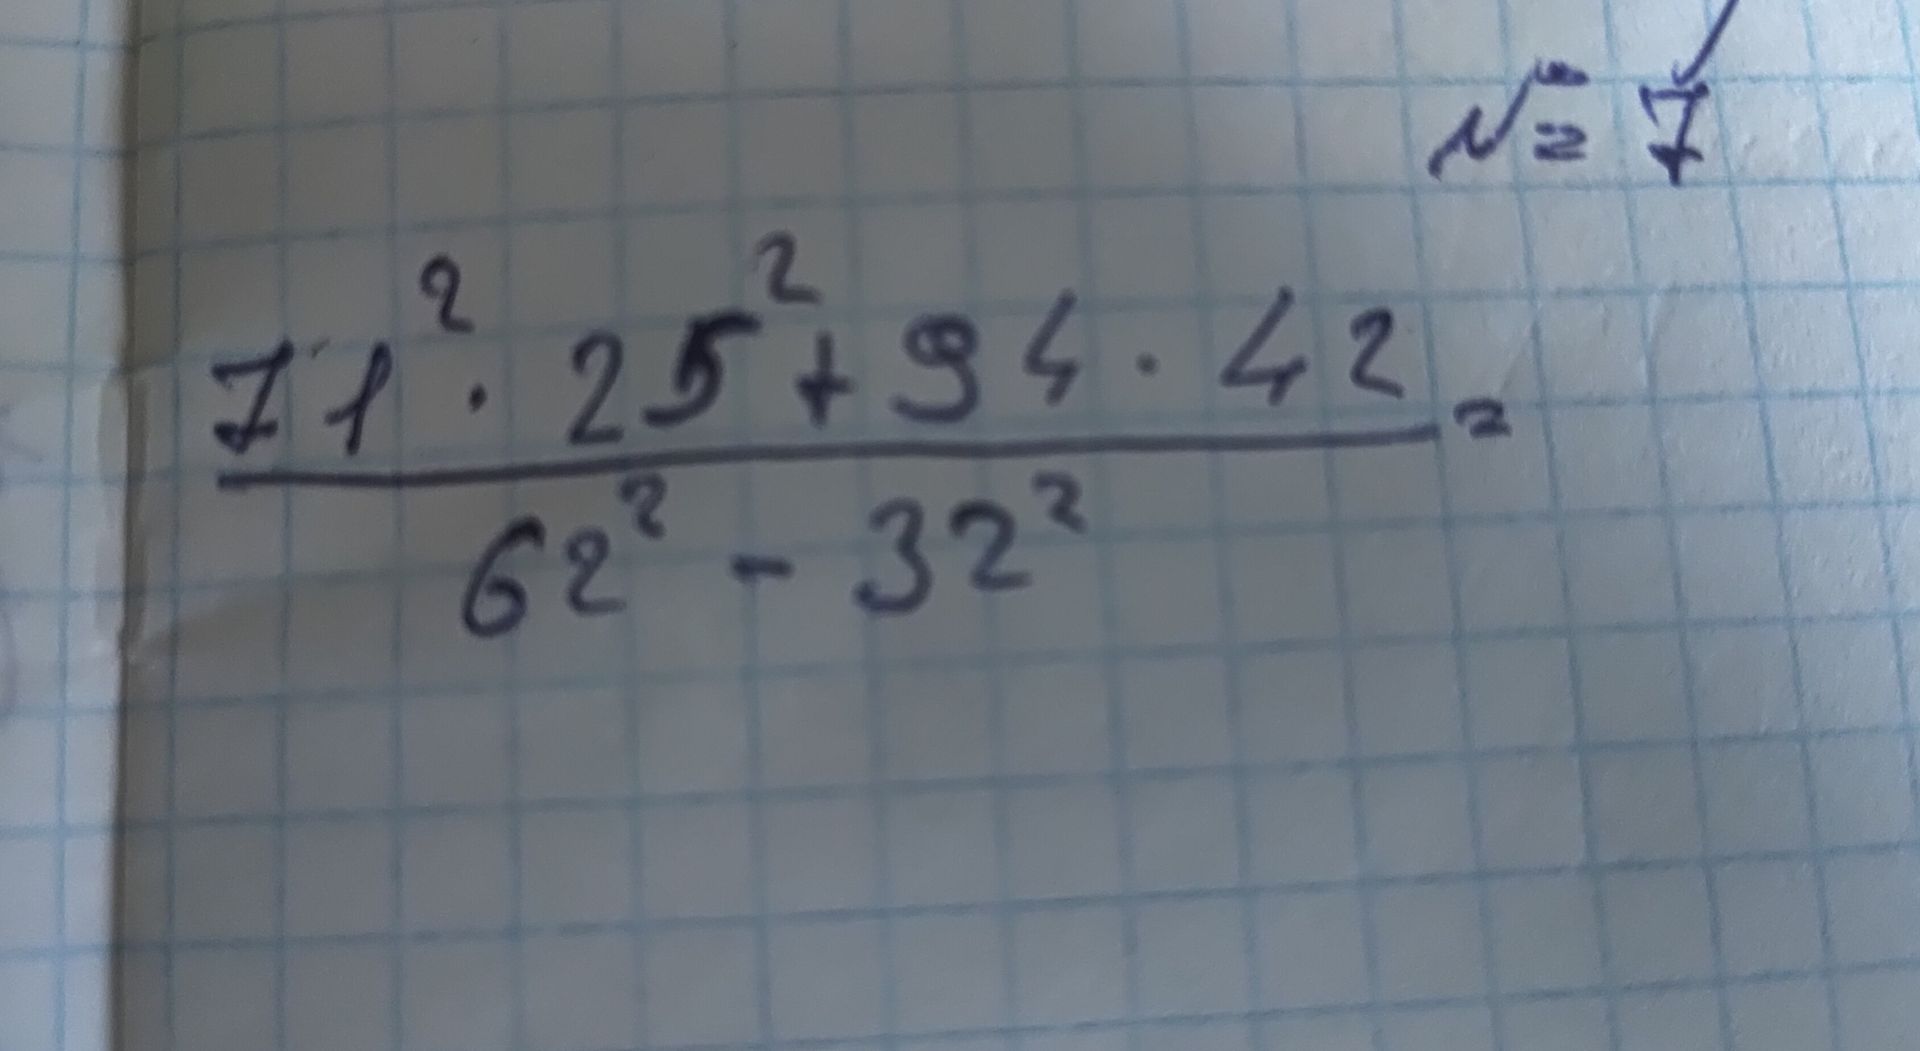 № 7
71² · 25² + 94 · 42 =
62² - 32²